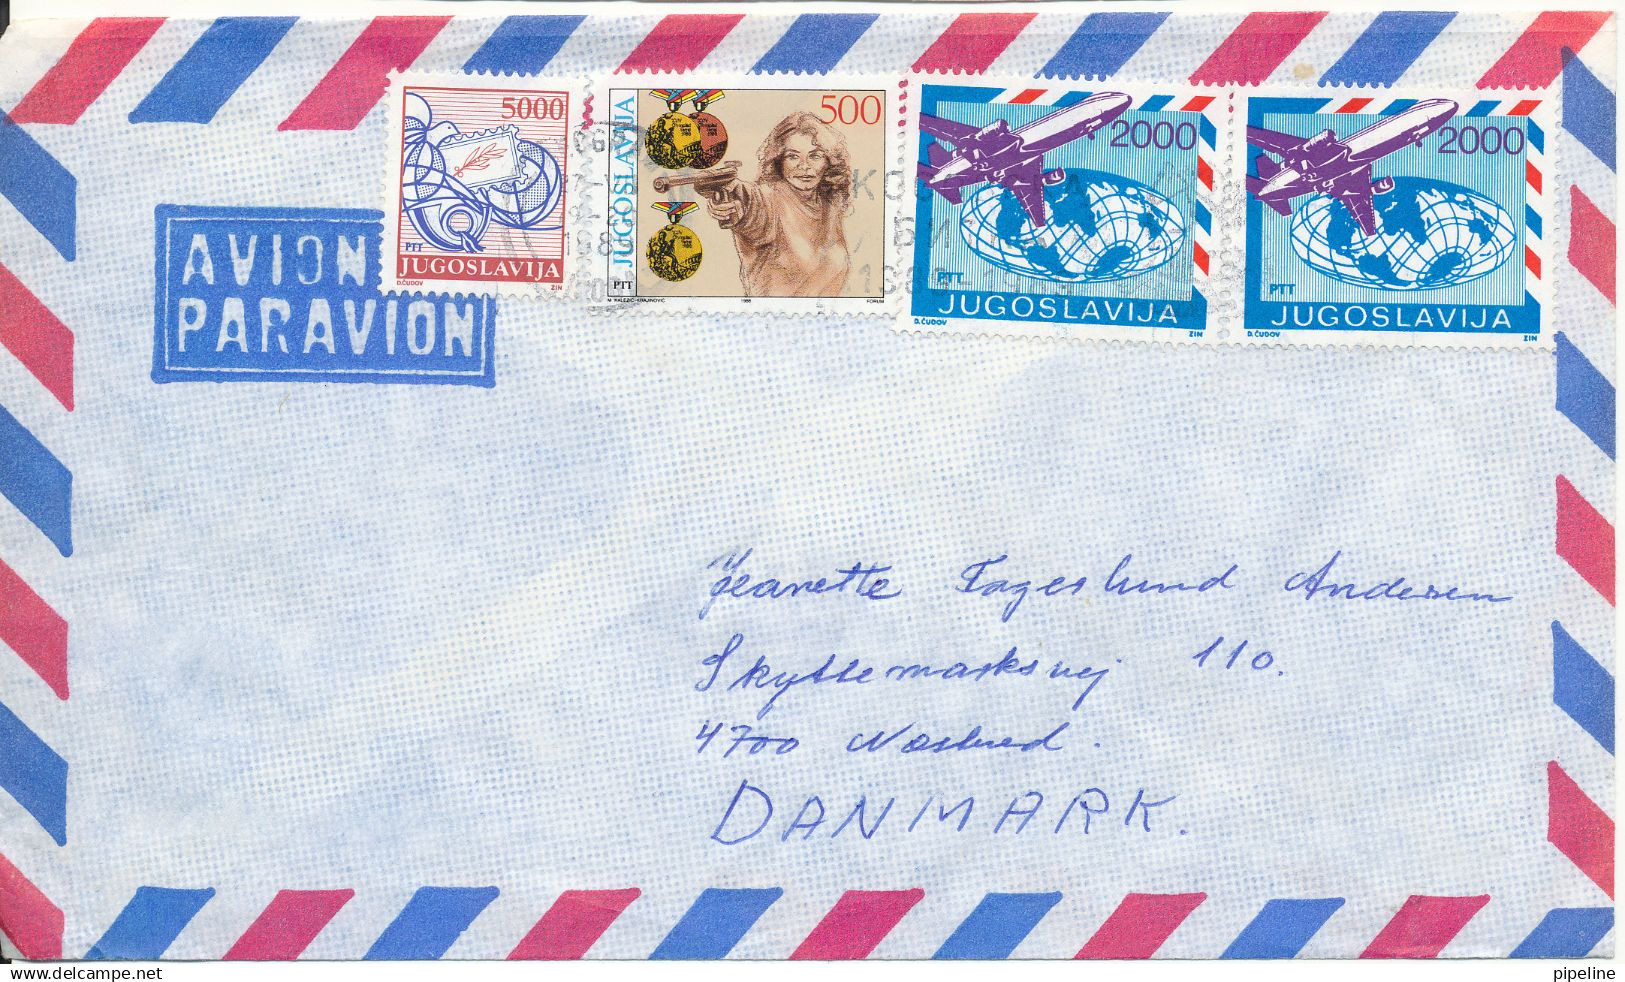 5000
PTT
JUGOSLAVIJA
D.ČUDOV ZIN
JUGOSLAVIJA
500
PTT
M. KALEZIĆ-KRAJINOVIĆ 1988 FORUM
2000
PTT
JUGOSLAVIJA
D.ČUDOV ZIN
2000
PTT
JUGOSLAVIJA
D.ČUDOV ZIN
AVION
PARAVION
Jeanette Fageslund Andersen
Skyttemarksvej 110.
4700 Næstved.
DANMARK.
delcampe.net
pipeline